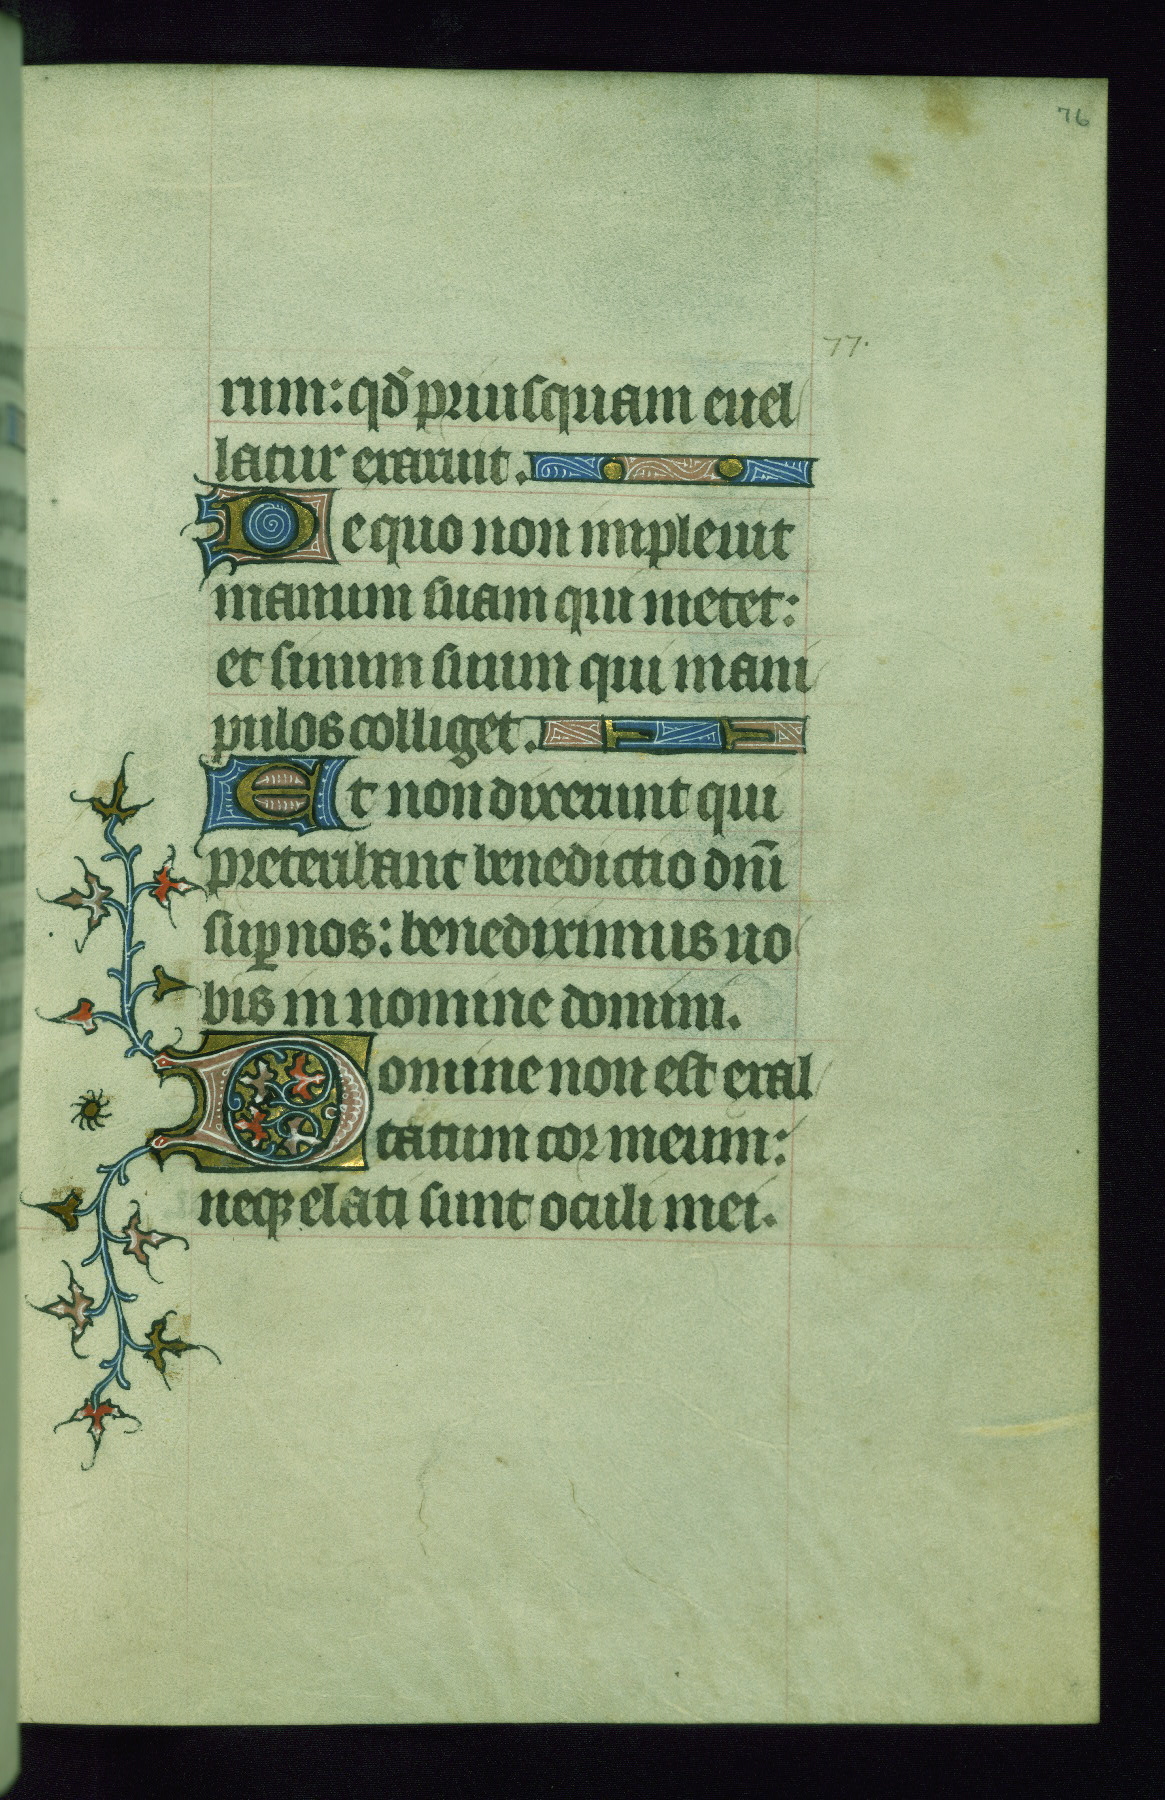 76
77.
rum: qd̄ priusquam euel
latur exaruit.
De quo non impleuit
manum suam qui metet:
et sinum suum qui mani
pulos colliget.
Et non dixerunt qui
preteribant benedictio dn̄i
suꝑ nos: benediximus uo
bis in nomine domini.
Domine non est exal
tatum cor meum:
neqꝫ elati sunt oculi mei.